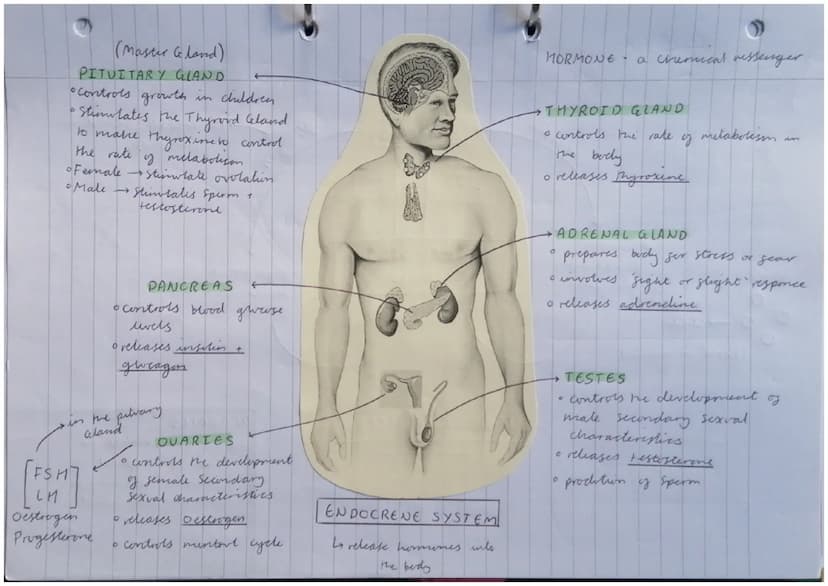 (Master Gland)
PITUITARY GLAND
controls growth in children
Stimulates the Thyroid Gland
to make thyroxine to control
the rate of metabolism
Female → Stimulate ovulation
Male → Stimulates Sperm +
testosterone
PANCREAS
controls blood glucose
levels
releases insulin +
glucagon
in the pituary
Gland
OVARIES
[FSH
LH]
Oestrogen
Progesterone
controls the development
of female secondary
sexual characteristics
releases Oestrogen
controls cycle
HORMONE - a chemical messenger
THYROID GLAND
controls the rate of metabolism in
the body
releases thyroxine
ADRENAL GLAND
prepares body for stress or fear
involves 'fight or flight' response
releases adrenaline
TESTES
controls the development of
male secondary sexual
characteristics
releases testosterone
of sperm
ENDOCRENE SYSTEM
↳ release hormones into
the body